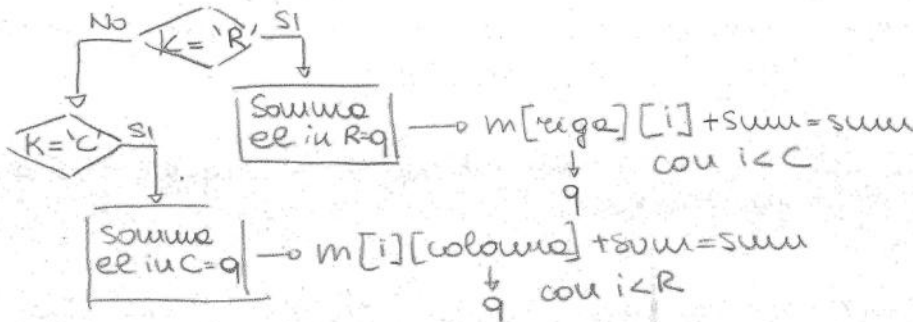 NO K = 'R' SI
Somma
el in R=q → m[riga][i] + sum = sum
con i<C
q
K = 'C' SI
Somma
el in C=q → m[i][colonna] + sum = sum
q con i<R